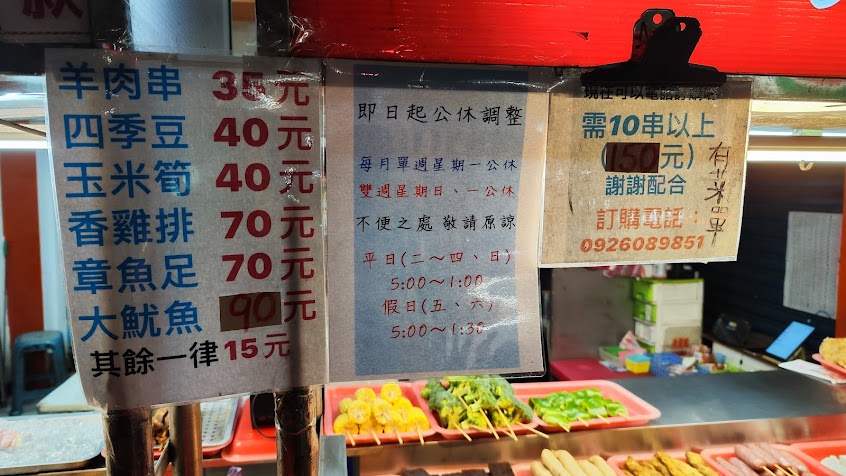 款
羊肉串 35元
四季豆 40元
玉米筍 40元
香雞排 70元
章魚足 70元
大魷魚 90元
其餘一律15元
即日起公休調整
每月單週星期一公休
雙週星期日、一公休
不便之處 敬請原諒
平日(二～四、日)
5:00～1:00
假日(五、六)
5:00～1:30
現在可以電話訂購
需10串以上
(150元)
謝謝配合
訂購電話：
0926089851
有菜單